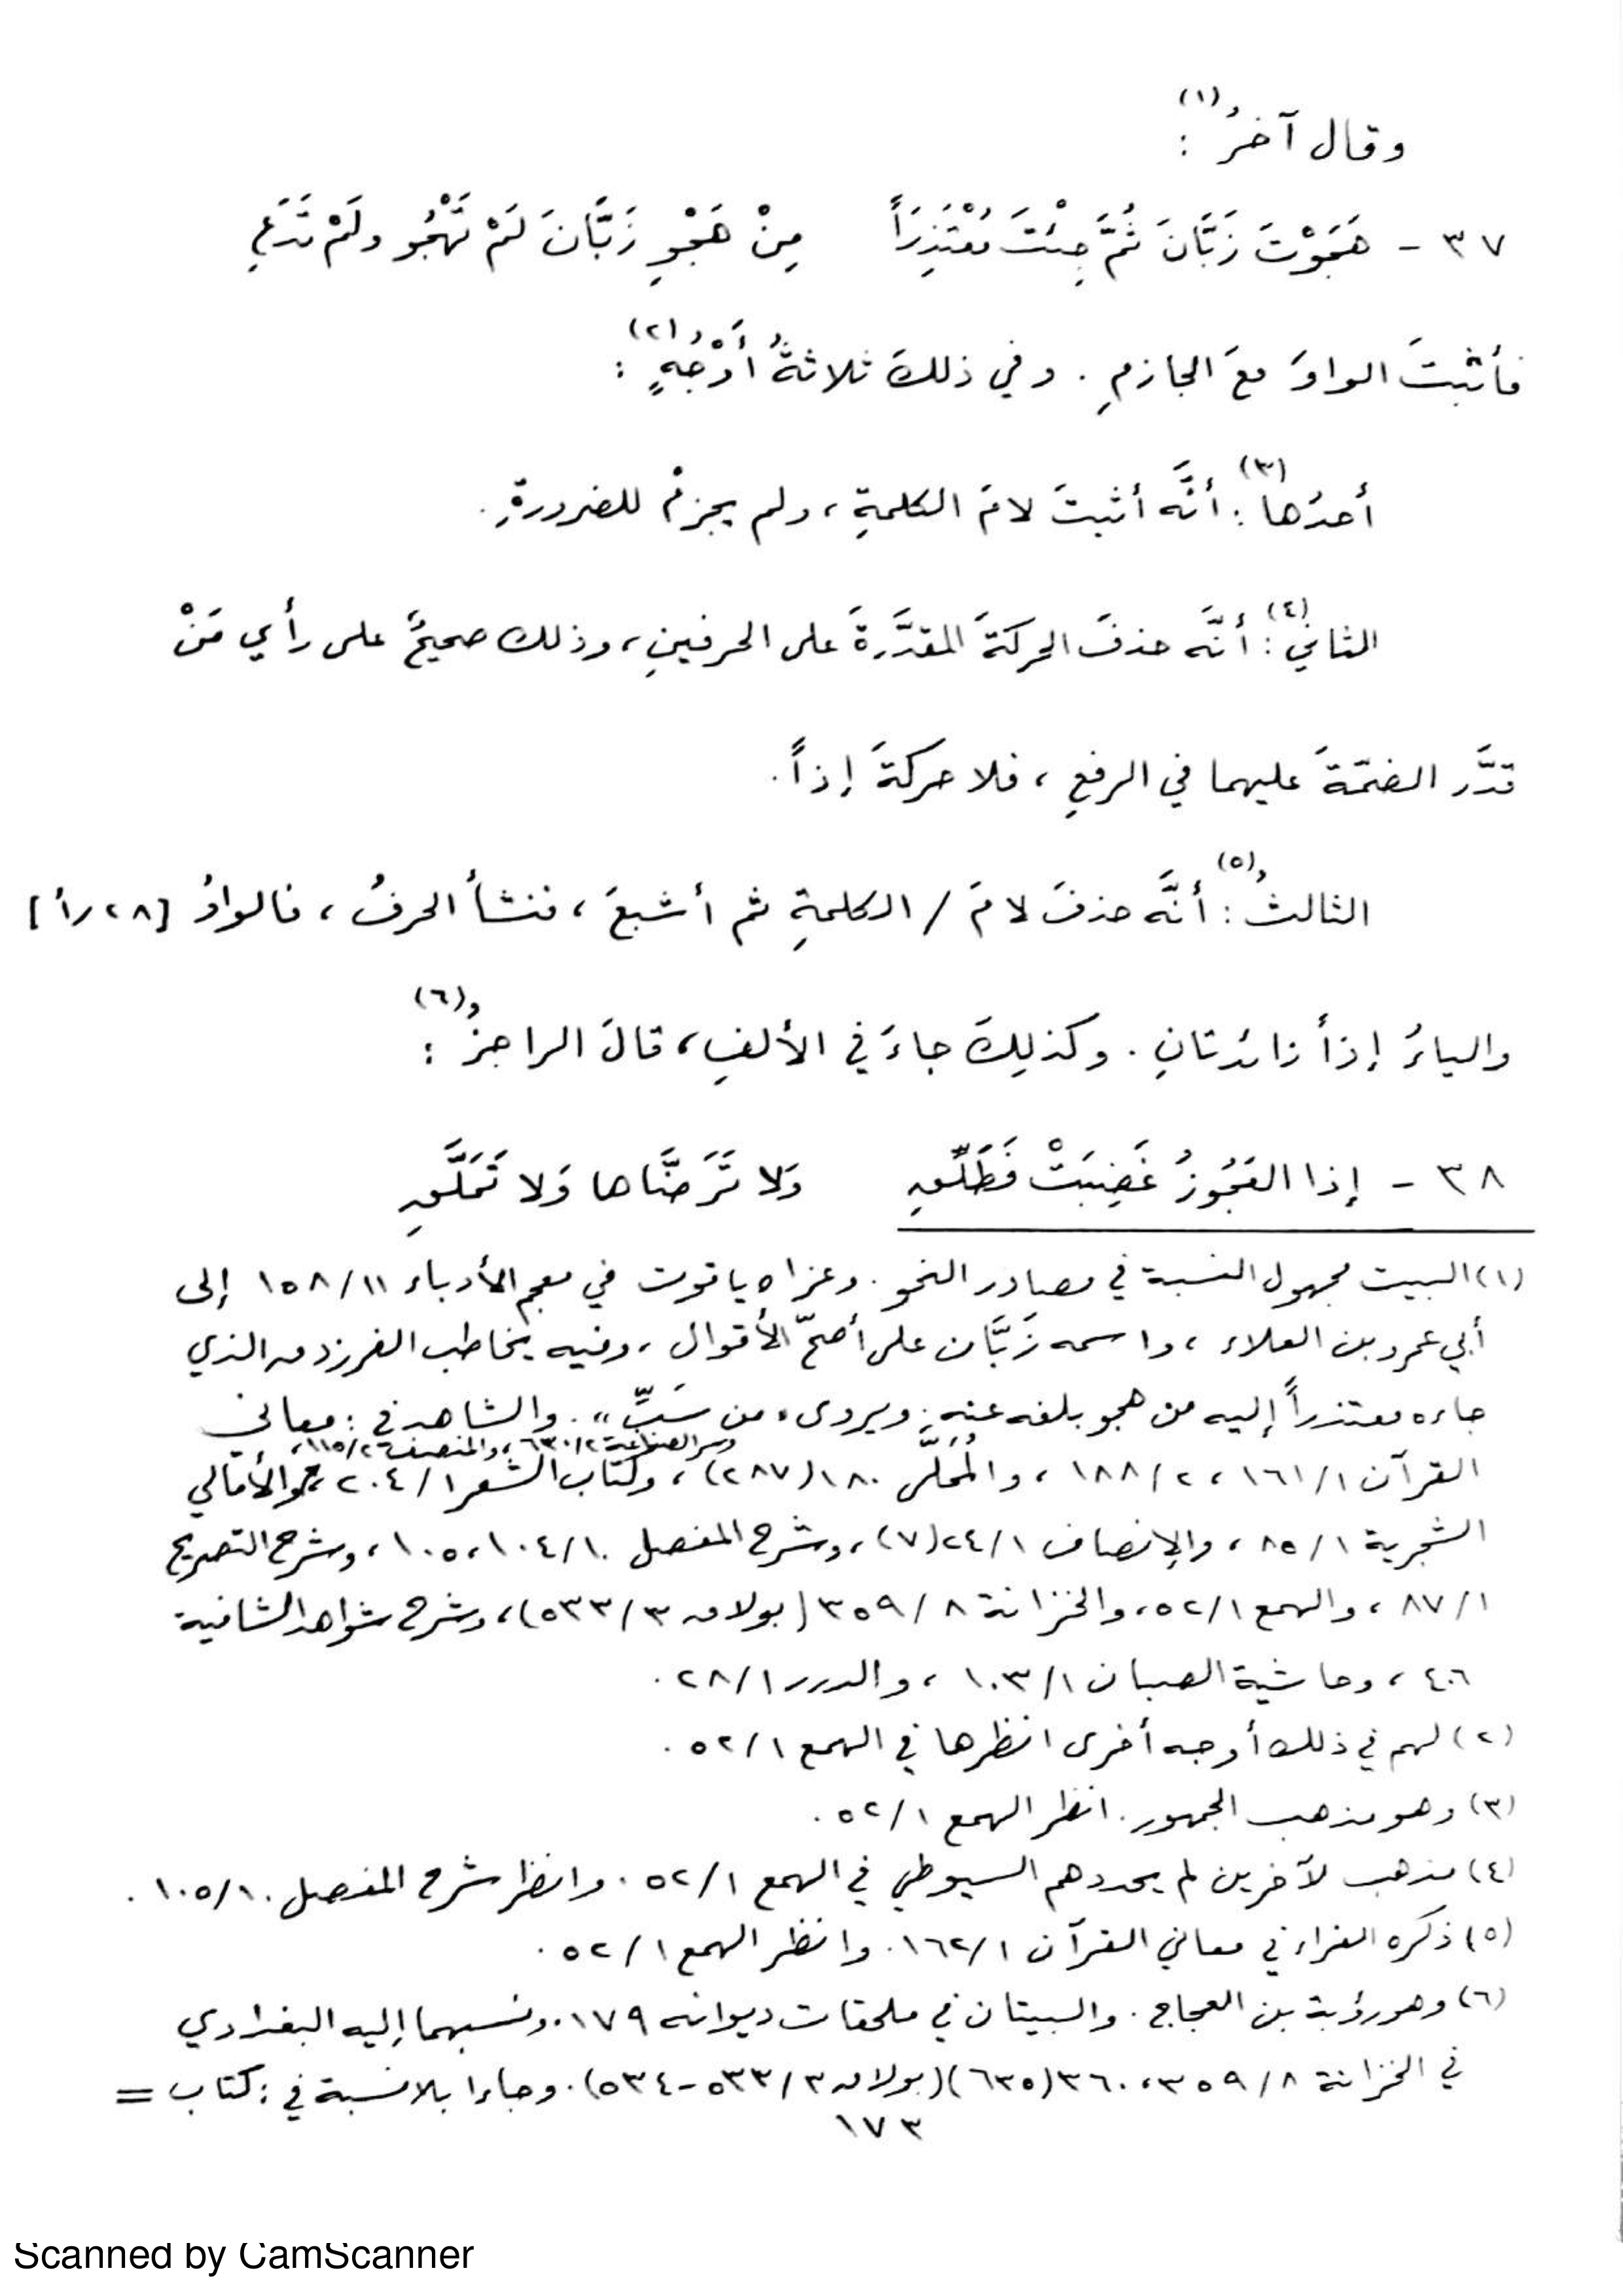 وقال آخرُ(١) :
٣٧ - هَجَوْتَ زَبَّانَ ثُمَّ جِئْتَ مُعْتَذِرَاً مِنْ هَجْوِ زَبَّانَ لَمْ تَهْجُو ولَمْ تَدَعِ
فأثبتَ الواوَ معَ الجازمِ . وفي ذلكَ ثلاثةُ أَوْجُهٍ(٢) :
أحدُها(٣) : أنَّه أثبتَ لامَ الكلمةِ ، ولم يجزمْ للضرورةِ .
الثاني(٤) : أنَّه حذفَ الحركةَ المقدَّرةَ على الحرفينِ ، وذلك صحيحٌ على رأي مَنْ
قدَّر الضمّةَ عليهما في الرفعِ ، فلا حركةَ إذاً .
الثالثُ(٥) : أنَّه حذفَ لامَ / الكلمةِ ثم أشبعَ ، فنشأ الحرفُ ، فالواوُ [٢٨/أ]
والياءُ إذاً زائدتانِ . وكذلِكَ جاءَ في الألفِ ، قالَ الراجزُ(٦) :
٣٨ - إذا العَجُوزُ غَضِبَتْ فَطَلِّقِ وَلا تَرَضَّاها وَلا تَمَلَّقِ
(١) البيت مجهول النسبة في مصادر النحو . وعزاه ياقوت في معجم الأدباء ١٥٨/١١ إلى
أبي عمرو بن العلاء ، واسمه زَبَّان على أصحّ الأقوال ، وفيه يخاطب الفرزدق الذي
جاءه معتذراً إليه من هجو بلغه عنه . ويروى « من سَبِّ » . والشاهد في : معاني
وسر الصناعة ٦٣٠/٢ ، والمنصف ١١٥/٢ ،
القرآن ١٦١/١ ، ١٨٨/٢ ، والمُحَلَّى ١٨٠ (٢٨٧) ، وكتاب الشعر ٢٠٤/١ ، والأمالي
الشجرية ٨٥/١ ، والإنصاف ٢٤/١ (٧) ، وشرح المفصل ١٠٤/١٠ ، ١٠٥ ، وشرح التصريح
٨٧/١ ، والهمع ٥٢/١ ، والخزانة ٣٥٩/٨ (بولاق ٥٣٣/٣) ، وشرح شواهد الشافية
٤٠٦ ، وحاشية الصبان ١٠٣/١ ، والدرر ٢٨/١ .
(٢) لهم في ذلك أوجه أخرى انظرها في الهمع ٥٢/١ .
(٣) وهو مذهب الجمهور . انظر الهمع ٥٢/١ .
(٤) مذهب لآخرين لم يحددهم السيوطي في الهمع ٥٢/١ . وانظر شرح المفصل ١٠٥/١٠ .
(٥) ذكره الفراء في معاني القرآن ١٦٢/١ . وانظر الهمع ٥٢/١ .
(٦) وهو رؤبة بن العجاج . والبيتان في ملحقات ديوانه ١٧٩ . ونسبهما إليه البغدادي
في الخزانة ٣٥٩/٨ ، ٣٦٠ (٦٣٥) (بولاق ٥٣٣/٣-٥٣٤) . وجاءا بلا نسبة في : كتاب =
١٧٣
Scanned by CamScanner